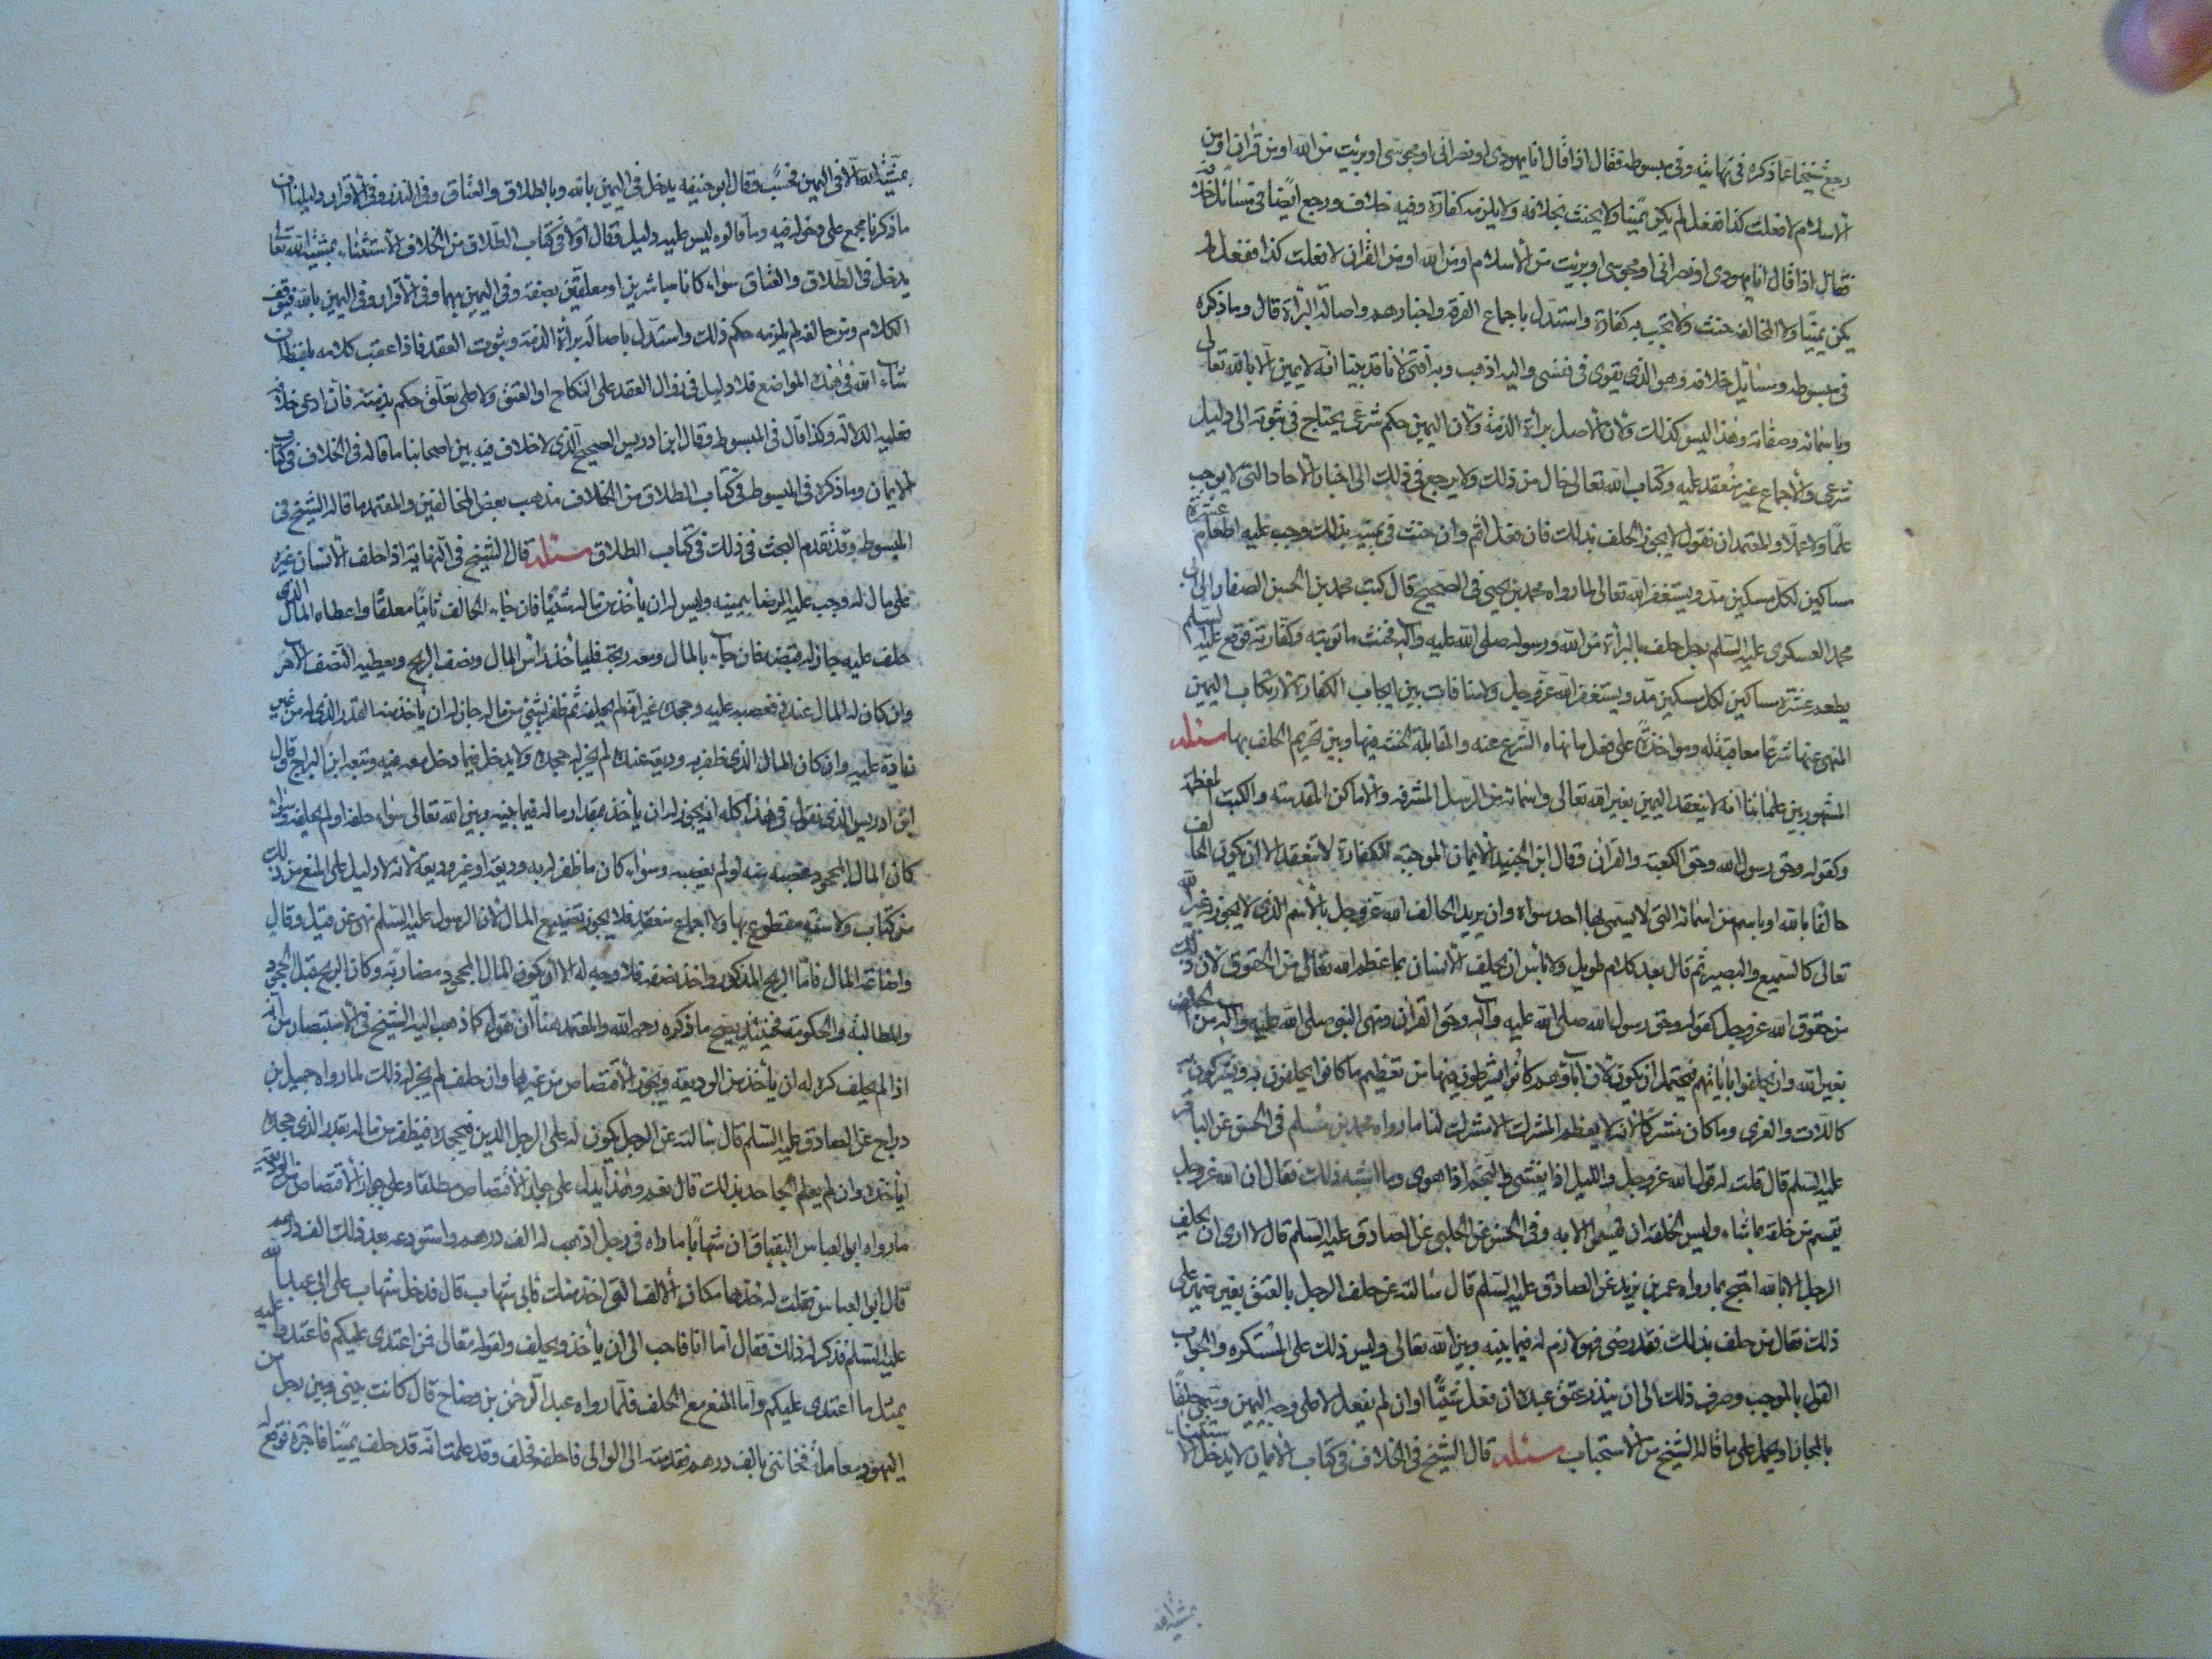 رجع شيخنا عما ذكره في نهايته وفي مبسوطه فقال اذا قال انا يهودي او نصراني او مجوسي او بريت من الله او من قران او من
الاسلام لا فعلت كذا ففعل لم يكن يمينا ولا يحنث بخلافه ولا يلزمه كفارة وفيه خلاف ورجع ايضا في مسائل خلافه
فقال اذا قال انا يهودي او نصراني او مجوسي او بريت من الاسلام او من الله او من القران لا فعلت كذا ففعل لم
يكن يمينا ولا المخالفه حنث ولا تجب به كفارة واستدل باجماع الفرقه واخبارهم واصالة البرأة قال وما ذكره
في مبسوطه ومسائل خلافه وهو الذي يقوى في نفسي واليه اذهب وبه افتى لانا قد بينا انه لا يمين الا بالله تعالى
وباسمائه وصفاته وهذا ليس كذلك ولان الاصل برأة الذمة ولان اليمين حكم شرعي يحتاج في ثبوته الى دليل
شرعي والاجماع غير منعقد عليه وكتاب الله تعالى خال من ذلك ولا يرجع في ذلك الى اخبار الاحاد التي لا يوجب
علما ولا عملا والمعتمد ان نقول لا يجوز الحلف بذلك فان فعل اثم وان حنث في يمينه بذلك وجب عليه اطعام عشرة
مساكين لكل مسكين مد ويستغفر الله تعالى لما رواه محمد بن يحيى في الصحيح قال كتب محمد بن الحسن الصفار الى ابي
محمد العسكري عليه السلم رجل حلف بالبرأة من الله ورسوله صلى الله عليه وآله فحنث ما توبته وكفارته فوقع عليه السلم
يطعم عشرة مساكين لكل مسكين مد ويستغفر الله عز وجل ولا منافات بين ايجاب الكفارة لارتكاب اليمين
المنهي عنها شرعا معاقبة له ومواخذة على فعل ما نهاه الشرع عنه والمقابلة الحنث فيها وبين تحريم الحلف بها مسئله
المشهور بين علمائنا انه لا ينعقد اليمين بغير الله تعالى واسمائه من الرسل المشرفه والاماكن المقدسه والكتب المعظمه
وكقوله وحق رسول الله وحق الكعبه والقران وقال ابن الجنيد الايمان الموجبه للكفارة لا تنعقد الا ان يكون الحالف
حالفا بالله او باسم من اسمائه التي لا يسمى بها احد سواه وان يريد الحالف الله عز وجل بالاسم الذي لا يجوز لغير الله
تعالى كالسميع والبصير ثم قال بعد كلام طويل ولا بأس ان يحلف الانسان بما عظم الله تعالى من الحقوق لان ذلك
من حقوق الله عز وجل كقوله وحق رسول الله صلى الله عليه وآله وحق القران ونهى النبي صلى الله عليه وآله من الحلف
بغير الله وان يحلفوا بابائهم فيحتمل ان يكون لان اباؤهم كانوا يشرطون فيها من تعظيم ما كانوا يحلفون به ويشركون به
كاللات والعزى وما كان مشركا لانه لا يعظم المشرك الا بشرك لنا ما رواه محمد بن مسلم في الحسن عن الباقر
عليه السلم قال قلت له قول الله عز وجل والليل اذا يغشى والنجم اذا هوى وما اشبه ذلك فقال ان الله عز وجل
يقسم من خلقه ما شاء وليس لخلقه ان يقسموا الا به وفي الحسن عن الحلبي عن الصادق عليه السلم قال لا ارى ان يحلف
الرجل الا بالله احتج بما رواه عمر بن يزيد عن الصادق عليه السلم قال سالته عن حلف الرجل بالعتق بغير ضمير على
ذلك فقال من حلف بذلك فقد رضي فهو لازم له فيما بينه وبين الله تعالى وليس ذلك على المستكره والجواب
القول بالموجب وصرف ذلك الى ان ينذر عتق عبده ان فعل شيئا او ان لم يفعل لا على وجه اليمين وسمي حلفا
بالمجاز او يحمل على ما قاله الشيخ من الاستحباب مسئله قال الشيخ في الخلاف في كتاب الايمان لا يدخل الاستثناء
بمشية الله
بمشية الله الا في اليمين فحسب وقال ابو حنيفه يدخل في اليمين بالله وبالطلاق والعتاق وفي النذر وفي الاقرار دليلنا ان
ما ذكرنا مجمع على دخوله فيه وما قالوه ليس عليه دليل وقال اولا في كتاب الطلاق من الخلاف الاستثناء بمشية الله تعالى
يدخل في الطلاق والعتاق سواء كانا مباشرين او معلقين بصفه وفي اليمين بهما وفي الاقرار وفي اليمين بالله فيوقف
الكلام ومن خالفه لم يلزمه حكم ذلك واستدل باصالة برأة الذمة وثبوت العقد فاذا عقب كلامه بلفظ ان
شاء الله في هذه المواضع فلا دليل في زوال العقد على النكاح او العتق ولا على تعلق حكم بذمته فان ادعى خلافه
فعليه الدلالة وكذا قال في المبسوط وقال ابن ادريس الصحيح الذي لا خلاف فيه بين اصحابنا ما قاله في الخلاف في كتاب
الايمان وما ذكره في المبسوط وفي كتاب الطلاق من الخلاف مذهب بعض المخالفين والمعتمد ما قاله الشيخ في
المبسوط وقد تقدم البحث في ذلك في كتاب الطلاق مسئله قال الشيخ في النهاية اذا حلف الانسان غيره
على مال له وجب عليه الرضا بيمينه وليس له ان يأخذ من ماله شيئا فان جاء الحالف ثانيا معلقا واعطاه المال الذي
حلف عليه جاز له قبضه فان جاء بالمال ومعه ربحه فليأخذ رأس المال ونصف الربح ويعطيه النصف الاخر
وان كان له المال عنده فغصبه عليه وجحده غير انه لم يحلف ثم ظفر بشئ من ماله جاز له ان يأخذ منه القدر الذي له من غير
زيادة عليه وان كان المال الذي ظفر به وديعة عنده لم يجز له جحده ولا يدخل فيما دخل معه فيه وتبعه ابن البراج وقال
ابن ادريس الذي نقول في هذا كله انه يجوز له ان يأخذ بمقدار ماله فيما بينه وبين الله تعالى سواء حلفه او لم يحلفه وسواء
كان المال المجحود غصبه منه او لم يغصبه وسواء كان ما ظفر له به وديعة او غير وديعة لانه لا دليل على المنع من ذلك
من كتاب ولا سنة مقطوع بها ولا اجماع منعقد فلا يجوز تضييع المال لان الرسول عليه السلم نهى عن قيل وقال
واضاعة المال فاما الربح المذكور واخذ نصفه فلا وجه له الا ان يكون المال المجحود مضاربة وكان الربح قبل الجحود
والمطالبة والحكومة فحينئذ يصح ما ذكره رحمه الله والمعتمد هنا ان نقول كما ذهب اليه الشيخ في الاستبصار من انه
اذا لم يحلف كره له ان يأخذ من الوديعة ويجوز الاقتصاص من غيرها وان حلف لم يجز له ذلك لما رواه جميل بن
دراج عن الصادق عليه السلم قال سالته عن الرجل يكون له على الرجل الدين فيجحده فيظفر من ماله بقدر الذي جحده
ايأخذه وان لم يعلم الجاحد بذلك قال نعم وهذا يدل على جواز الاقتصاص مطلقا وعلى جواز الاقتصاص من الوديعة
ما رواه ابو العباس البقباق ان شهابا ماراه في رجل اذهب له الف درهم واستودعه بعد ذلك الف درهم
قال ابو العباس فقلت له خذها مكان الالف التي اخذ منك فابى شهاب قال فدخل شهاب على ابي عبد الله
عليه السلم فذكر له ذلك فقال اما انا فاحب الي ان يأخذ ويحلف ولقوله تعالى فمن اعتدى عليكم فاعتدوا عليه
بمثل ما اعتدى عليكم واما المنع مع الحلف فلما رواه عبد الرحمن بن وضاح قال كانت بيني وبين رجل من
اليهود معاملة فخانني بالف درهم فقدمته الى الوالي فاحلفته فحلف وقد علمت انه قد حلف يمينا فاجرة فوقع له